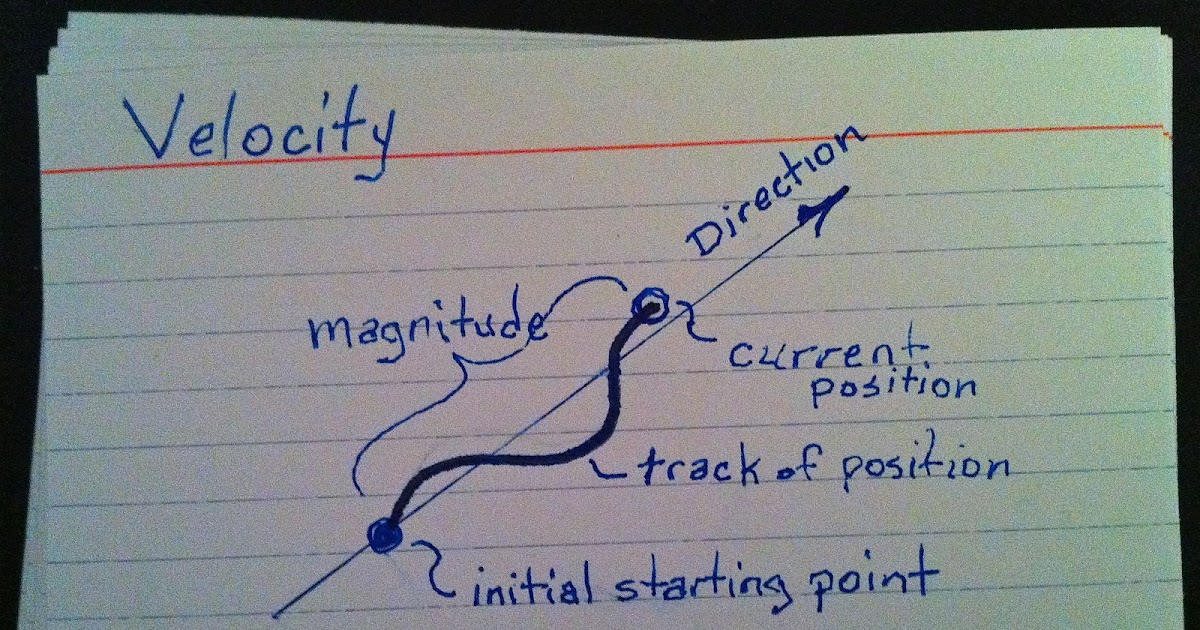 Velocity
Direction
magnitude
current
position
track of position
initial starting point